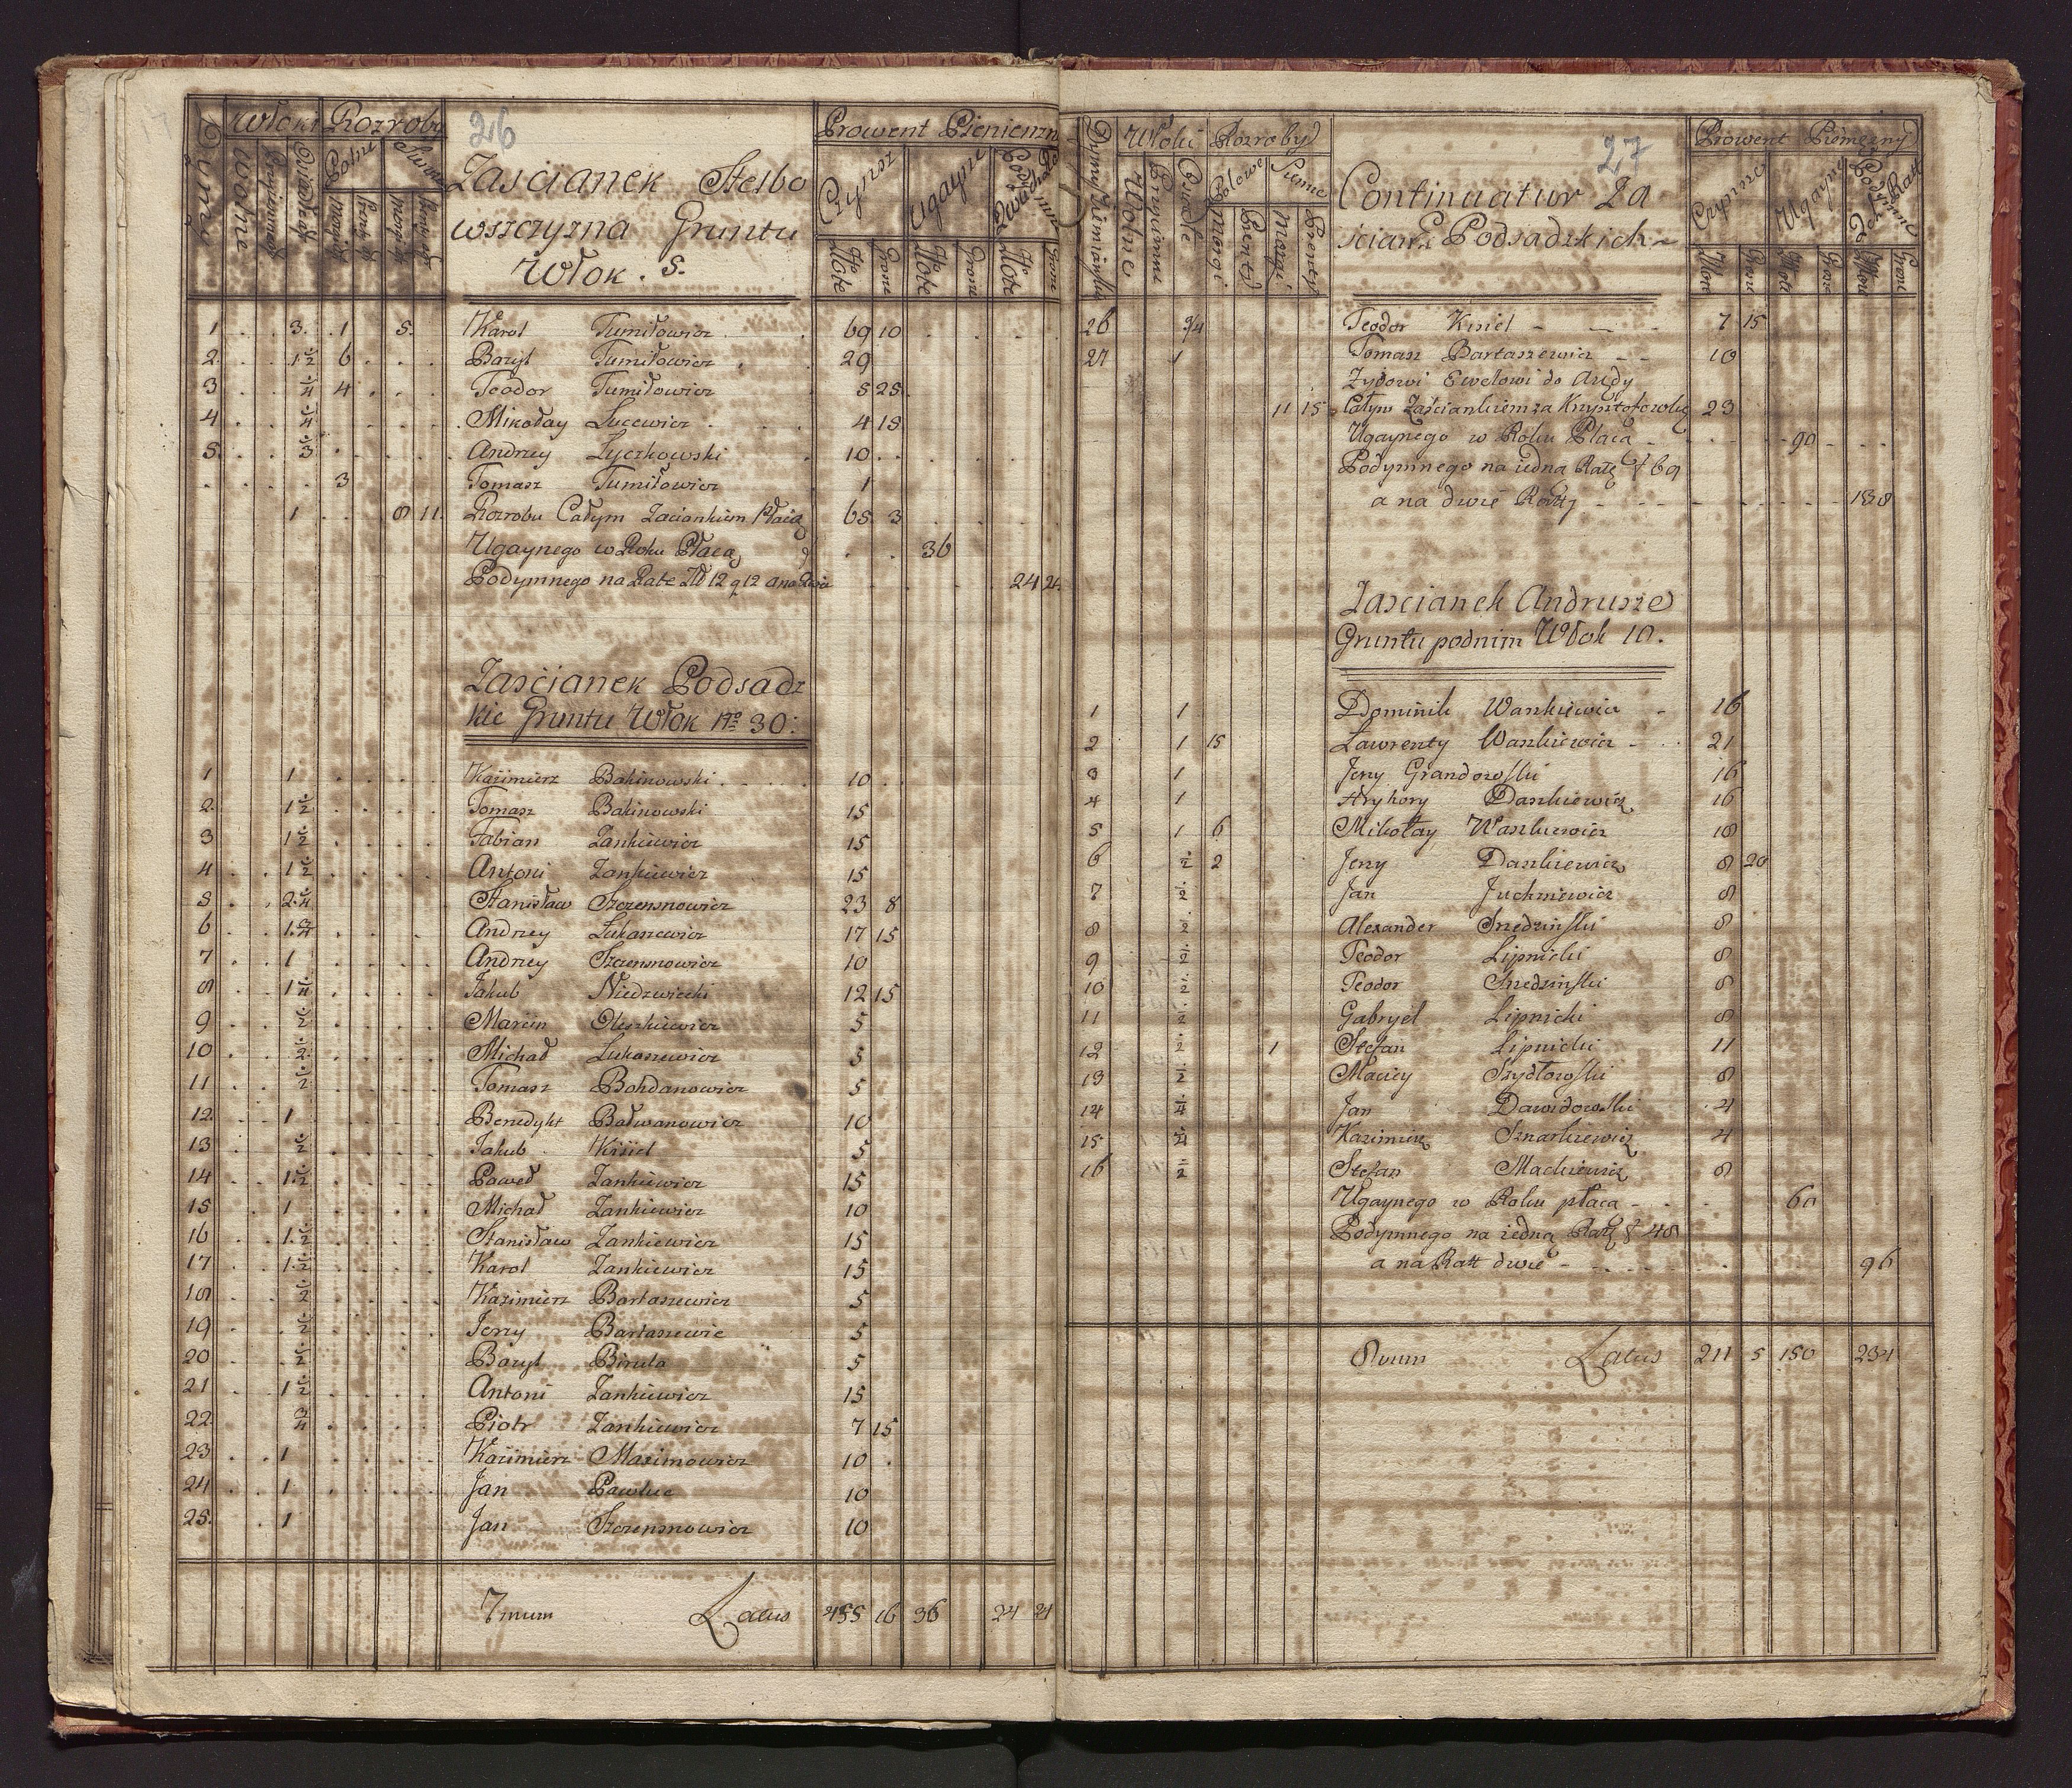 26
Dymy Włoki Rozroby Prowent Pieniężn
Wolne Przyiemne Osiadłe Polne Sienne
Morgi Pręty Morgi Pręty
Czynsz Ugayne
Złote Grosze Złote Grosze Złote Grosze
Zascianek Stelbo
wszczyzna Gruntu
Włok . 5.
1 . . 3. . 1 5. Karol Tumiłowicz . 69 10
2. . . 1 1/2 6 . . . Bazyl Tumiłowicz . 29
3 . . 1/4 4 . . . Teodor Tumiłowicz 5 25
4 . . 1/4 . . . . Mikołay Lucewicz . 4 15
5. . . 3 . . . . Andrzey Łyczkowski . 10 . .
. . . . 3 Tomasz Tumiłowicz 1
1 . . 8 11. Rozrobu Całym Zaciankiem Płacą 65 3
Ugaynego w Roku Płacą . . 36
Podymnego na Rate Zł 12 g 12 a na Dwie . . . . 24 24
Zaścianek Podsadz
kie Gruntu Włok No 30.
1 1 Kaźimierz Bakinowski . . . . 10 .
2. 1 1/2 Tomasz Bakinowski 15
3 1 1/2 Fabian Zankiewicz 15
4 1 1/2 Antoni Zankiewicz 15
5 2 1/4 Stanisław Szczensnowicz 23 8
6 1 3/4 Andrzey Łukaszewicz 17 15
7 1 Andrzey Szczensnowicz 10
8 1 1/4 Jakub Niedzwiecki 12 15
9 1/2 Marcin Oleszkiewicz 5
10 1/2 Michał Łukaszewicz 5
11 1/2 Tomasz Bohdanowicz 5
12. 1 Benedykt Bałwanowicz 10
13 1/2 Jakub Kisiel 5
14 1 1/2 Paweł Zankiewicz 15
15 1 Michał Zankiewicz 10
16 1 1/2 Stanisław Zankiewicz 15
17 1 1/2 Karol Zankiewicz 15
18 1/2 Kazimierz Bartaszewicz 5
19 1/2 Jerzy Bartaszewic 5
20 1/2 Bazyl Birula 5
21 1 1/2 Antoni Zankiewicz 15
22. 3/4 Piotr Zankiewicz 7 15
23 1 Kazimierz Maximowicz 10 .
24 1 Jan Pawluc 10
25. 1 Jan Szczensnowicz 10
7mum Latus 455 16 36 24 24
27
Dymy Ziemiańskie Włoki Rozroby Prowent Pienięzny
Wolne Przyiemne Osiadłe Polowe Sienne
Morgi Prenty Morgi Prenty
Czynsze Ugayne
Złote Grosze Złote Grosze Złote Grosze
Continuatur Za
ścianku Podsadzkich
26 3/4 Teodor Kisiel - — - 7 15
27 1 Tomasz Bartaszewicz - - 10
Żydowi Ewelowi do Arędy
11 15 Całym Zaściankiem za Krzysztofowską 23
Ugaynego w Roku Płacą - . . . 90 - . .
Podymnego na iedną Ratę f 69
a na dwie Ratty - - - - . . 138
Zascianek Andrusze
Gruntu pod nim Włok 10.
1 1 Dominik Waszkiewicz - 16
2 1 15 Lawrenty Waszkiewicz - . 21
3 1 Jerzy Grandowski 16
4 1 Hryhory Daszkiewicz 16
5 1 6 Mikołay Waszkiewicz 18
6 1/2 2 Jerzy Daszkiewicz 8 20
7 1/2 Jan Juchniewicz 8
8 1/2 Alexander Sniedzinski 8
9 1/2 Teodor Lipnicki 8
10 1/2 Teodor Sniedzinski 8
11 1/2 Gabryel Lipnicki 8
12 1/2 1 Stefan Lipnicki 11
13 1/2 Maciey Szydłowski 8
14 1/4 Jan Dawidowski 4
15 1/4 Kazimierz Sznarkiewicz 4
16 1/2 Stefan Mackiewicz 8
Ugaynego w Roku płacą - . . 60
Podymnego na iedną Ratę f 48
a na Ratt dwie - - . . . 96
8vum Latus 211 5 150 234